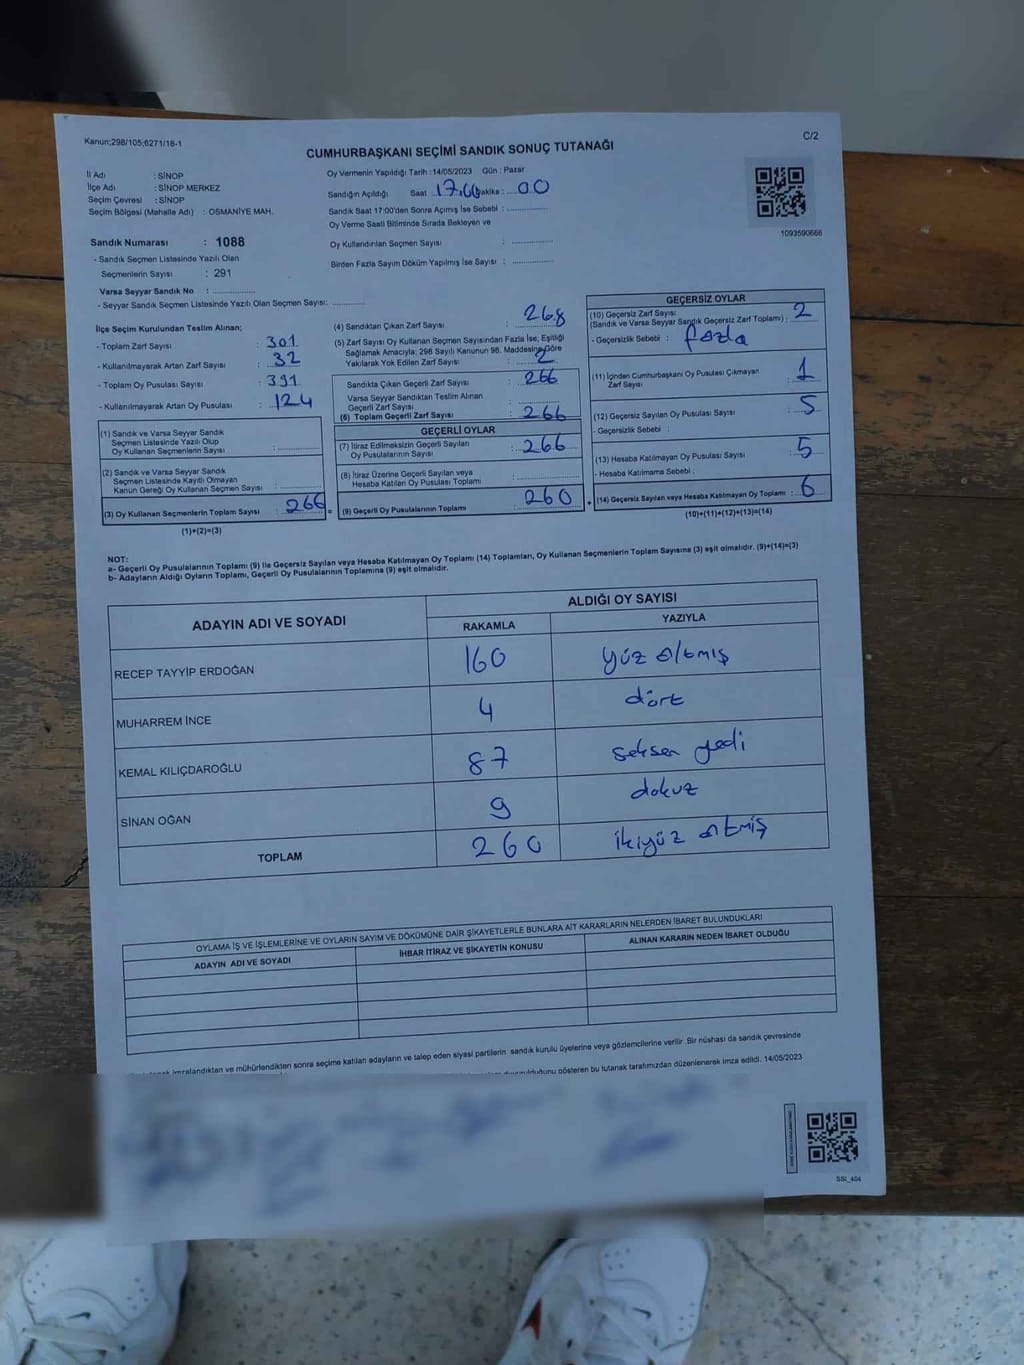 Kanun;298/105;6271/18-1
C/2
CUMHURBAŞKANI SEÇİMİ SANDIK SONUÇ TUTANAĞI
İl Adı : SİNOP
İlçe Adı : SİNOP MERKEZ
Seçim Çevresi : SİNOP
Seçim Bölgesi (Mahalle Adı) : OSMANİYE MAH.
Sandık Numarası : 1088
- Sandık Seçmen Listesinde Yazılı Olan
Seçmenlerin Sayısı : 291
Varsa Seyyar Sandık No : ............
- Seyyar Sandık Seçmen Listesinde Yazılı Olan Seçmen Sayısı: ............
Oy Vermenin Yapıldığı Tarih :14/05/2023 Gün : Pazar
Sandığın Açıldığı Saat 17.00 Dakika : 00
Sandık Saat 17:00'den Sonra Açmış İse Sebebi : ............
Oy Verme Saati Bitiminde Sırada Bekleyen ve
Oy Kullandırılan Seçmen Sayısı : ............
Birden Fazla Sayım Döküm Yapılmış İse Sayısı : ............
1093590666
İlçe Seçim Kurulundan Teslim Alınan;
- Toplam Zarf Sayısı : 301
- Kullanılmayarak Artan Zarf Sayısı : 32
- Toplam Oy Pusulası Sayısı : 391
- Kullanılmayarak Artan Oy Pusulası : 124
(1) Sandık ve Varsa Seyyar Sandık
Seçmen Listesinde Yazılı Olup
Oy Kullanan Seçmenlerin Sayısı : ............
(2) Sandık ve Varsa Seyyar Sandık
Seçmen Listesinde Kayıtlı Olmayan
Kanun Gereği Oy Kullanan Seçmen Sayısı : ............
(3) Oy Kullanan Seçmenlerin Toplam Sayısı : 266
(1)+(2)=(3)
(4) Sandıktan Çıkan Zarf Sayısı : 268
(5) Zarf Sayısı Oy Kullanan Seçmen Sayısından Fazla İse, Eşitliği
Sağlamak Amacıyla; 298 Sayılı Kanunun 98. Maddesine Göre
Yakılarak Yok Edilen Zarf Sayısı : 2
Sandıkta Çıkan Geçerli Zarf Sayısı : 266
Varsa Seyyar Sandıktan Teslim Alınan
Geçerli Zarf Sayısı :
(6) Toplam Geçerli Zarf Sayısı : 266
GEÇERLİ OYLAR
(7) İtiraz Edilmeksizin Geçerli Sayılan
Oy Pusulalarının Sayısı : 266
(8) İtiraz Üzerine Geçerli Sayılan veya
Hesaba Katılan Oy Pusulası Toplamı : ............
= (9) Geçerli Oy Pusulalarının Toplamı : 260
GEÇERSİZ OYLAR
(10) Geçersiz Zarf Sayısı
(Sandık ve Varsa Seyyar Sandık Geçersiz Zarf Toplamı) : 2
- Geçersizlik Sebebi : fazla
(11) İçinden Cumhurbaşkanı Oy Pusulası Çıkmayan
Zarf Sayısı : 1
(12) Geçersiz Sayılan Oy Pusulası Sayısı : 5
- Geçersizlik Sebebi :
(13) Hesaba Katılmayan Oy Pusulası Sayısı : 5
- Hesaba Katılmama Sebebi :
+ (14) Geçersiz Sayılan veya Hesaba Katılmayan Oy Toplamı : 6
(10)+(11)+(12)+(13)=(14)
NOT:
a- Geçerli Oy Pusulalarının Toplamı (9) ile Geçersiz Sayılan veya Hesaba Katılmayan Oy Toplamı (14) Toplamları, Oy Kullanan Seçmenlerin Toplam Sayısına (3) eşit olmalıdır. (9)+(14)=(3)
b- Adayların Aldığı Oyların Toplamı, Geçerli Oy Pusulalarının Toplamına (9) eşit olmalıdır.
ADAYIN ADI VE SOYADI
ALDIĞI OY SAYISI
RAKAMLA YAZIYLA
RECEP TAYYİP ERDOĞAN 160 yüz altmış
MUHARREM İNCE 4 dört
KEMAL KILIÇDAROĞLU 87 seksen yedi
SİNAN OĞAN 9 dokuz
TOPLAM 260 ikiyüz altmış
OYLAMA İŞ VE İŞLEMLERİNE VE OYLARIN SAYIM VE DÖKÜMÜNE DAİR ŞİKAYETLERLE BUNLARA AİT KARARLARIN NELERDEN İBARET BULUNDUKLARI
ADAYIN ADI VE SOYADI İHBAR İTİRAZ VE ŞİKAYETİN KONUSU ALINAN KARARIN NEDEN İBARET OLDUĞU
imzalandıktan ve mühürlendikten sonra seçime katılan adayların ve talep eden siyasi partilerin sandık kurulu üyelerine veya gözlemcilerine verilir .Bir nüshası da sandık çevresinde
gösteren bu tutanak tarafımızdan düzenlenerek imza edildi. 14/05/2023
SSI_404